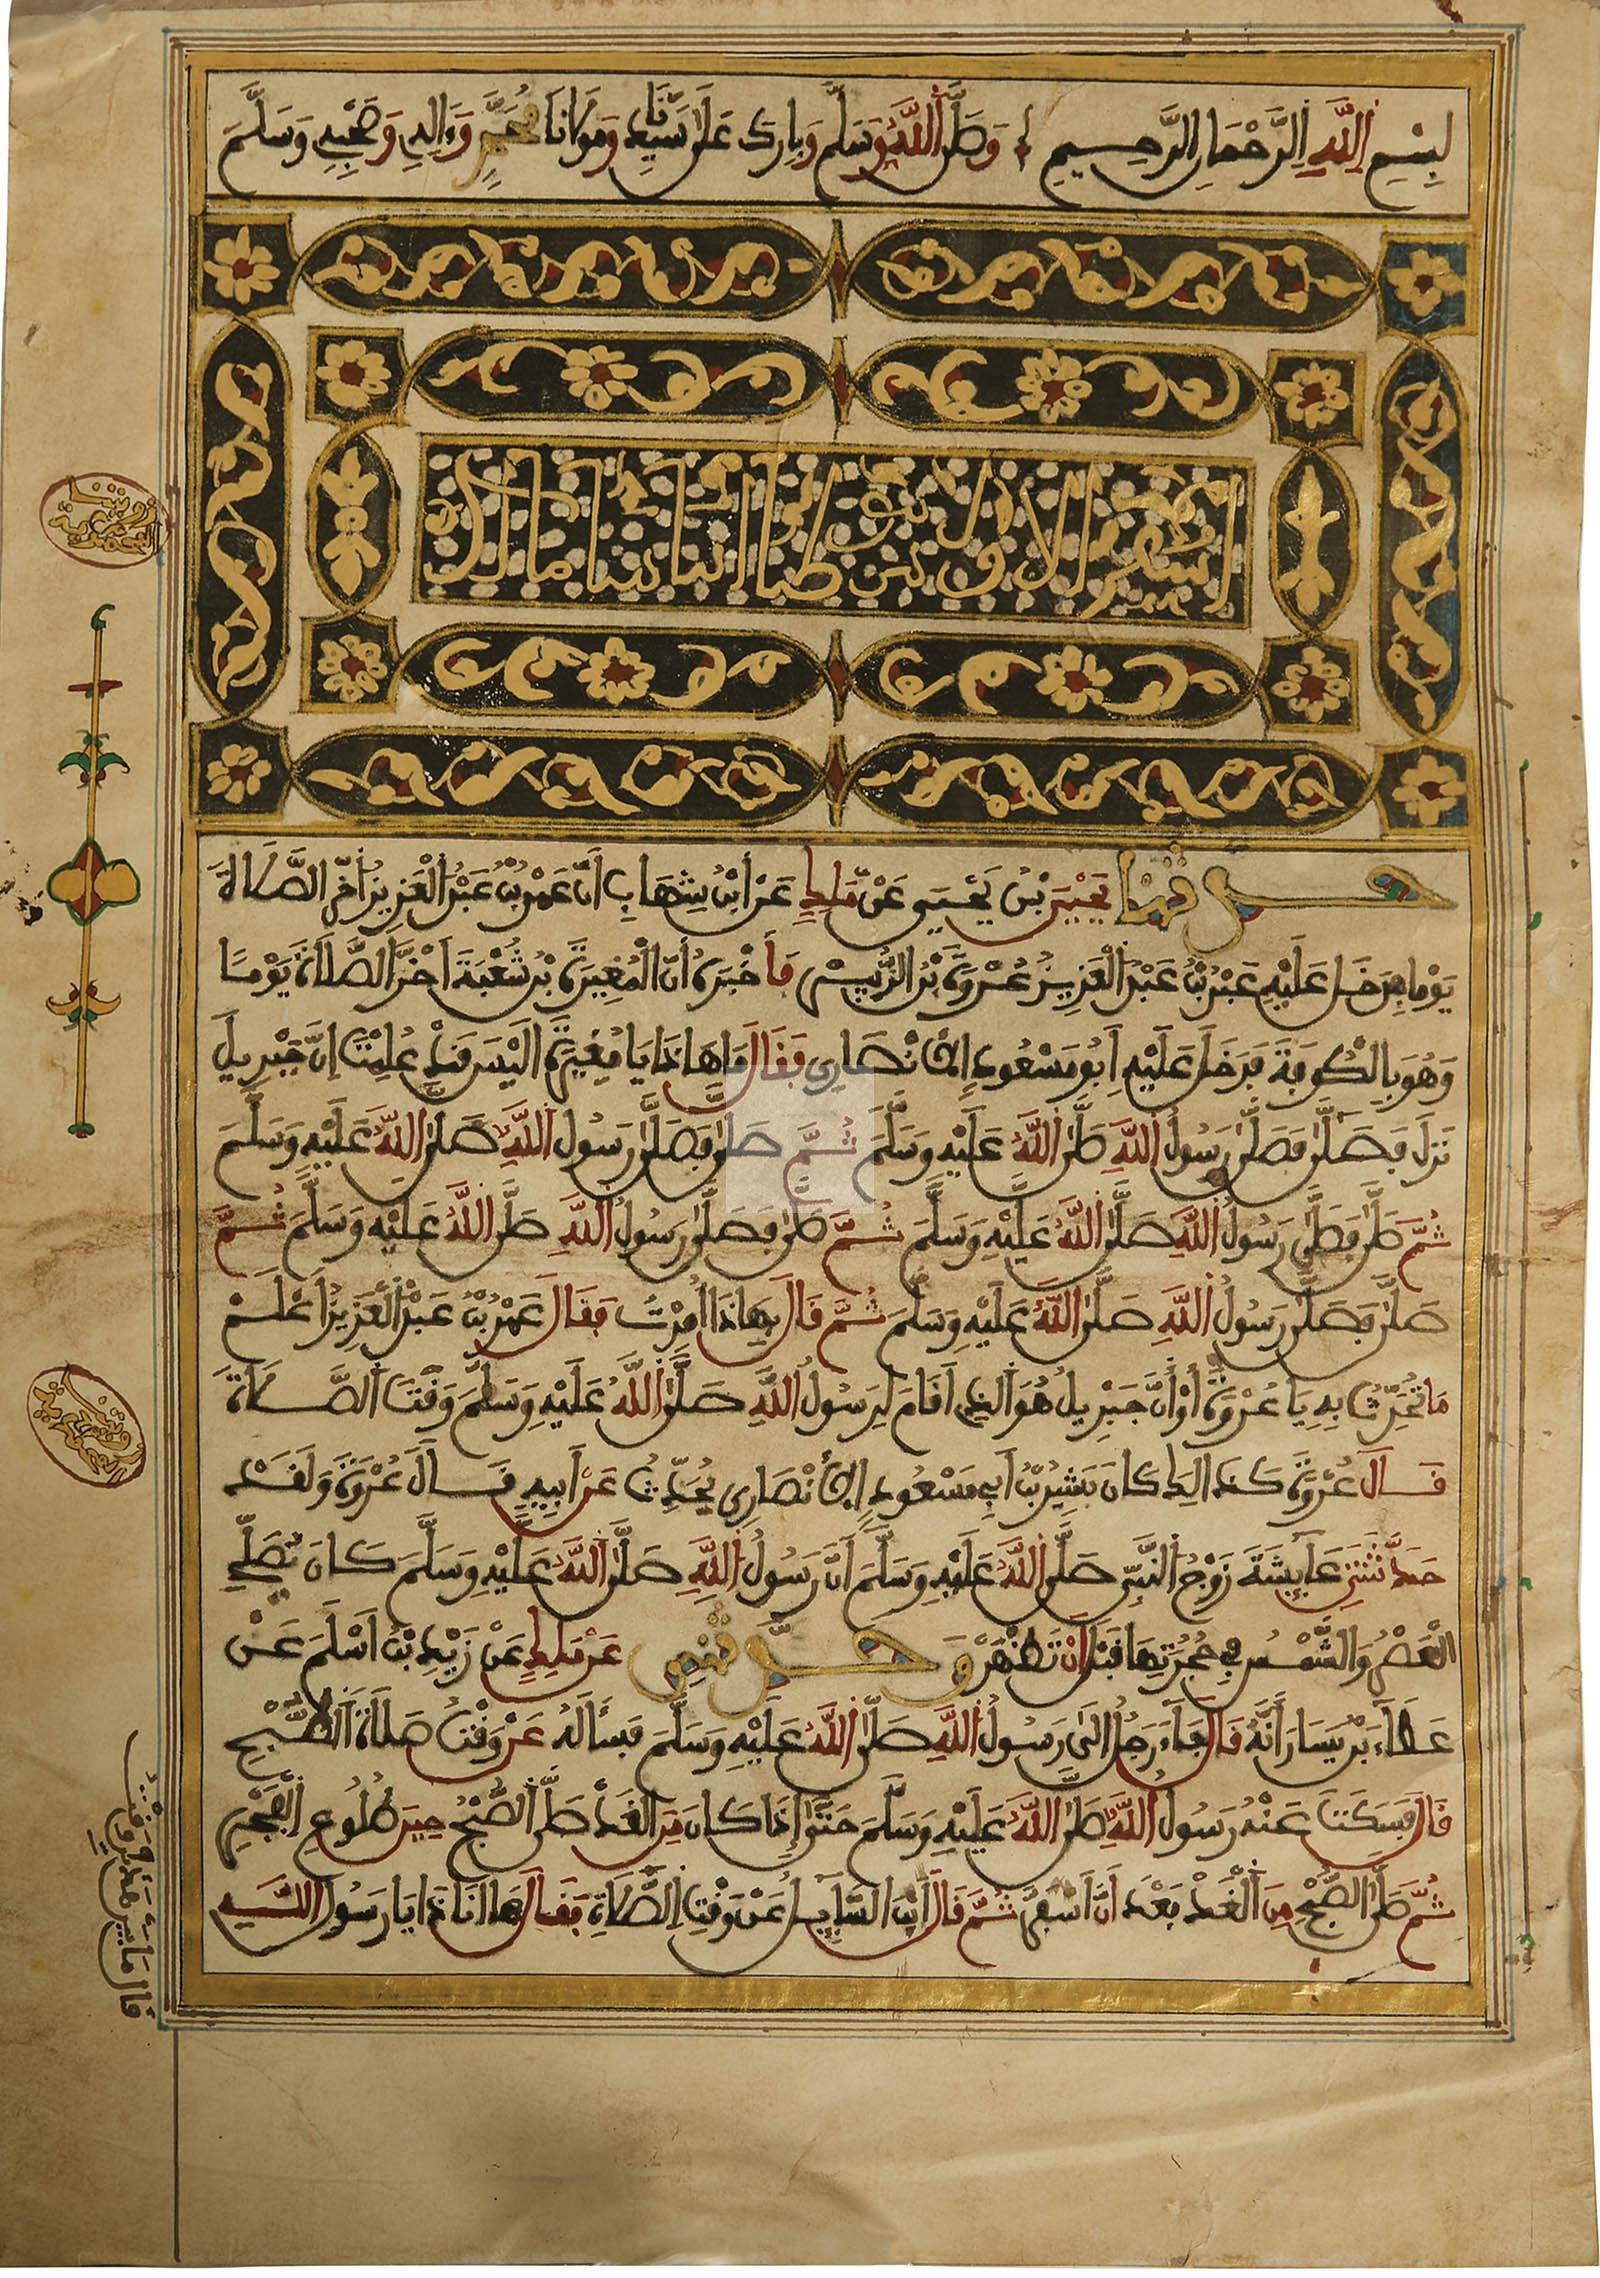 بِسْمِ اللَّهِ الرَّحْمَانِ الرَّحِيمِ وَصَلَّى اللَّهُ وَسَلَّمَ وَبَارَكَ عَلَى سَيِّدِنَا وَمَوْلَانَا مُحَمَّدٍ وَءَالِهِ وَصَحْبِهِ وَسَلَّمَ
السفر الأول من موطأ الإمام مالك
حدثنا يَحْيَى بْنُ يَحْيَى عَنْ مَالِكٍ عَنْ ابْنِ شِهَابٍ أَنَّ عُمَرَ بْنَ عَبْدِ الْعَزِيزِ أَخَّرَ الصَّلَاةَ
يَوْمًا فَدَخَلَ عَلَيْهِ عُرْوَةُ بْنُ الزُّبَيْرِ فَأَخْبَرَهُ أَنَّ الْمُغِيرَةَ بْنَ شُعْبَةَ أَخَّرَ الصَّلَاةَ يَوْمًا
وَهُوَ بِالْكُوفَةِ فَدَخَلَ عَلَيْهِ أَبُو مَسْعُودٍ الْأَنْصَارِي فَقَالَ مَا هَاذَا يَا مُغِيرَةُ أَلَيْسَ قَدْ عَلِمْتَ أَنَّ جِبْرِيلَ
نَزَلَ فَصَلَّى فَصَلَّى رَسُولُ اللَّهِ صَلَّى اللَّهُ عَلَيْهِ وَسَلَّمَ ثُمَّ صَلَّى فَصَلَّى رَسُولُ اللَّهِ صَلَّى اللَّهُ عَلَيْهِ وَسَلَّمَ
ثُمَّ صَلَّى فَصَلَّى رَسُولُ اللَّهِ صَلَّى اللَّهُ عَلَيْهِ وَسَلَّمَ ثُمَّ صَلَّى فَصَلَّى رَسُولُ اللَّهِ صَلَّى اللَّهُ عَلَيْهِ وَسَلَّمَ ثُمَّ
صَلَّى فَصَلَّى رَسُولُ اللَّهِ صَلَّى اللَّهُ عَلَيْهِ وَسَلَّمَ ثُمَّ قَالَ بِهَاذَا أُمِرْتُ فَقَالَ عُمَرُ بْنُ عَبْدِ الْعَزِيزِ اعْلَمْ
مَا تُحَدِّثُ بِهِ يَا عُرْوَةُ أَوَ أَنَّ جِبْرِيلَ هُوَ الَّذِي أَقَامَ لِرَسُولِ اللَّهِ صَلَّى اللَّهُ عَلَيْهِ وَسَلَّمَ وَقْتَ الصَّلَاةَ
قَالَ عُرْوَةُ كَذَالِكَ كَانَ بَشِيرُ بْنُ أَبِي مَسْعُودٍ الْأَنْصَارِي يُحَدِّثُ عَنْ أَبِيهِ قَالَ عُرْوَةُ وَلَقَدْ
حَدَّثَتْنِي عَائِشَةُ زَوْجُ النَّبِيِّ صَلَّى اللَّهُ عَلَيْهِ وَسَلَّمَ أَنَّ رَسُولَ اللَّهِ صَلَّى اللَّهُ عَلَيْهِ وَسَلَّمَ كَانَ يُصَلِّي
الْعَصْرَ وَالشَّمْسُ فِي حُجْرَتِهَا قَبْلَ أَنْ تَظْهَرَ وَحدثني عَنْ مَالِكٍ عَنْ زَيْدِ بْنِ أَسْلَمَ عَنْ
عَطَاءِ بْنِ يَسَارٍ أَنَّهُ قَالَ جَاءَ رَجُلٌ إِلَى رَسُولِ اللَّهِ صَلَّى اللَّهُ عَلَيْهِ وَسَلَّمَ فَسَأَلَهُ عَنْ وَقْتِ صَلَاةِ الصُّبْحِ
قَالَ فَسَكَتَ عَنْهُ رَسُولُ اللَّهِ صَلَّى اللَّهُ عَلَيْهِ وَسَلَّمَ حَتَّى إِذَا كَانَ مِنَ الْغَدِ صَلَّى الصُّبْحَ حِينَ طُلُوعِ الْفَجْرِ
ثُمَّ صَلَّى الصُّبْحَ مِنَ الْغَدِ بَعْدَ أَنْ أَسْفَرَ ثُمَّ قَالَ أَيْنَ السَّائِلُ عَنْ وَقْتِ الصَّلَاةِ فَقَالَ هَا أَنَا ذَا يَا رَسُولَ اللَّهِ
قَالَ مَا بَيْنَ هَذَيْنِ وَقْتٌ